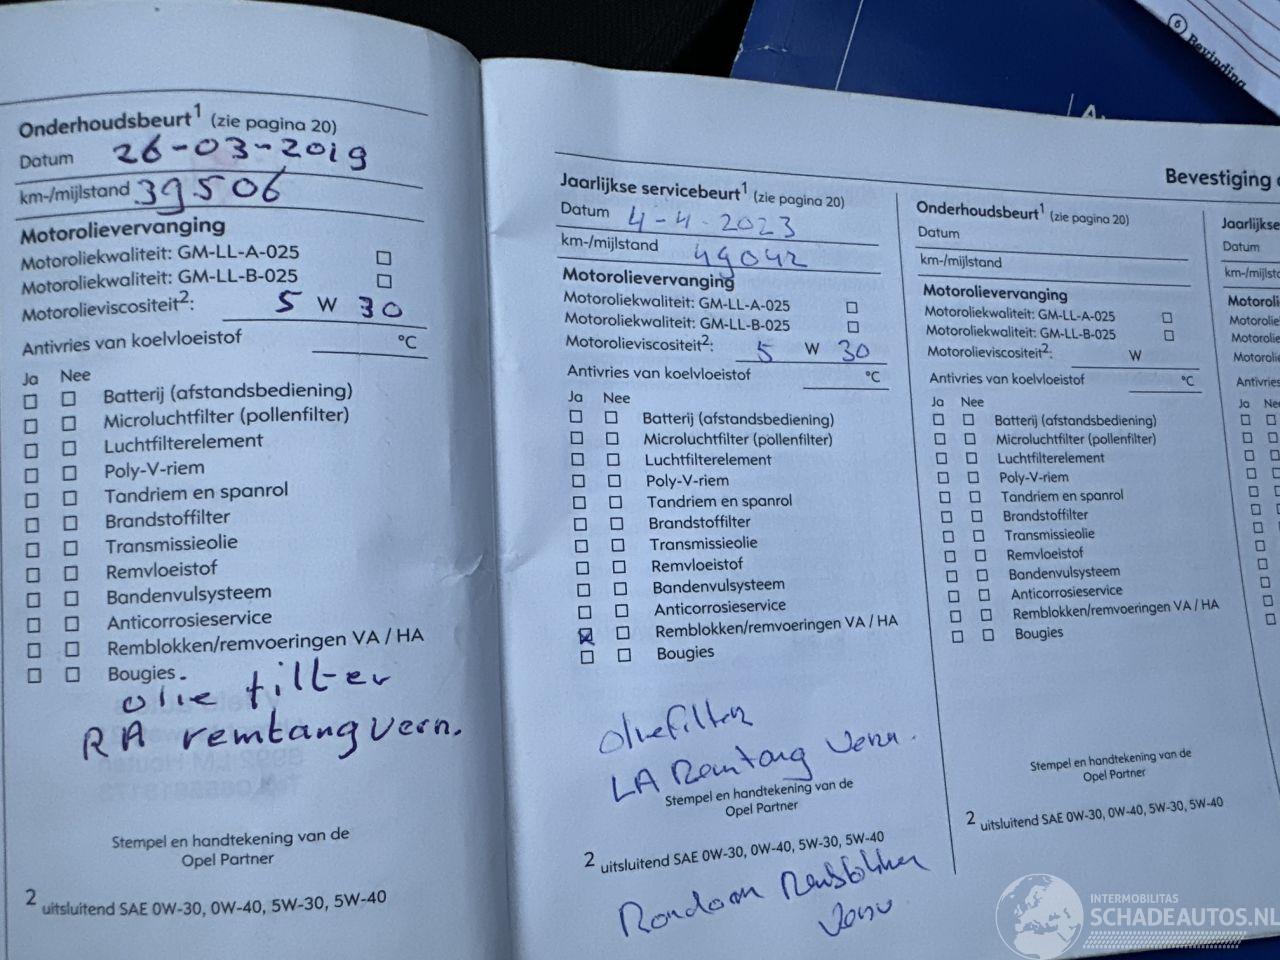 6 Bevinding
Onderhoudsbeurt1 (zie pagina 20)
Datum 26-03-2019
km-/mijlstand 39506
Motorolievervanging
Motoroliekwaliteit: GM-LL-A-025
Motoroliekwaliteit: GM-LL-B-025
Motorolieviscositeit2: 5 W 30
Antivries van koelvloeistof °C
Ja Nee
Batterij (afstandsbediening)
Microluchtfilter (pollenfilter)
Luchtfilterelement
Poly-V-riem
Tandriem en spanrol
Brandstoffilter
Transmissieolie
Remvloeistof
Bandenvulsysteem
Anticorrosieservice
Remblokken/remvoeringen VA / HA
Bougies
olie filter
RA remtang vern.
Stempel en handtekening van de
Opel Partner
2 uitsluitend SAE 0W-30, 0W-40, 5W-30, 5W-40
Jaarlijkse servicebeurt1 (zie pagina 20)
Datum 4-4-2023
km-/mijlstand 49042
Motorolievervanging
Motoroliekwaliteit: GM-LL-A-025
Motoroliekwaliteit: GM-LL-B-025
Motorolieviscositeit2: 5 W 30
Antivries van koelvloeistof °C
Ja Nee
Batterij (afstandsbediening)
Microluchtfilter (pollenfilter)
Luchtfilterelement
Poly-V-riem
Tandriem en spanrol
Brandstoffilter
Transmissieolie
Remvloeistof
Bandenvulsysteem
Anticorrosieservice
Remblokken/remvoeringen VA / HA
Bougies
oliefilter
LA Remtang vern.
Stempel en handtekening van de
Opel Partner
2 uitsluitend SAE 0W-30, 0W-40, 5W-30, 5W-40
Rondom Remblokken
Bevestiging
Onderhoudsbeurt1 (zie pagina 20)
Datum
km-/mijlstand
Motorolievervanging
Motoroliekwaliteit: GM-LL-A-025
Motoroliekwaliteit: GM-LL-B-025
Motorolieviscositeit2: W
Antivries van koelvloeistof °C
Ja Nee
Batterij (afstandsbediening)
Microluchtfilter (pollenfilter)
Luchtfilterelement
Poly-V-riem
Tandriem en spanrol
Brandstoffilter
Transmissieolie
Remvloeistof
Bandenvulsysteem
Anticorrosieservice
Remblokken/remvoeringen VA / HA
Bougies
Stempel en handtekening van de
Opel Partner
2 uitsluitend SAE 0W-30, 0W-40, 5W-30, 5W-40
Jaarlijkse
Datum
Ja
INTERMOBILITAS
SCHADEAUTOS.NL